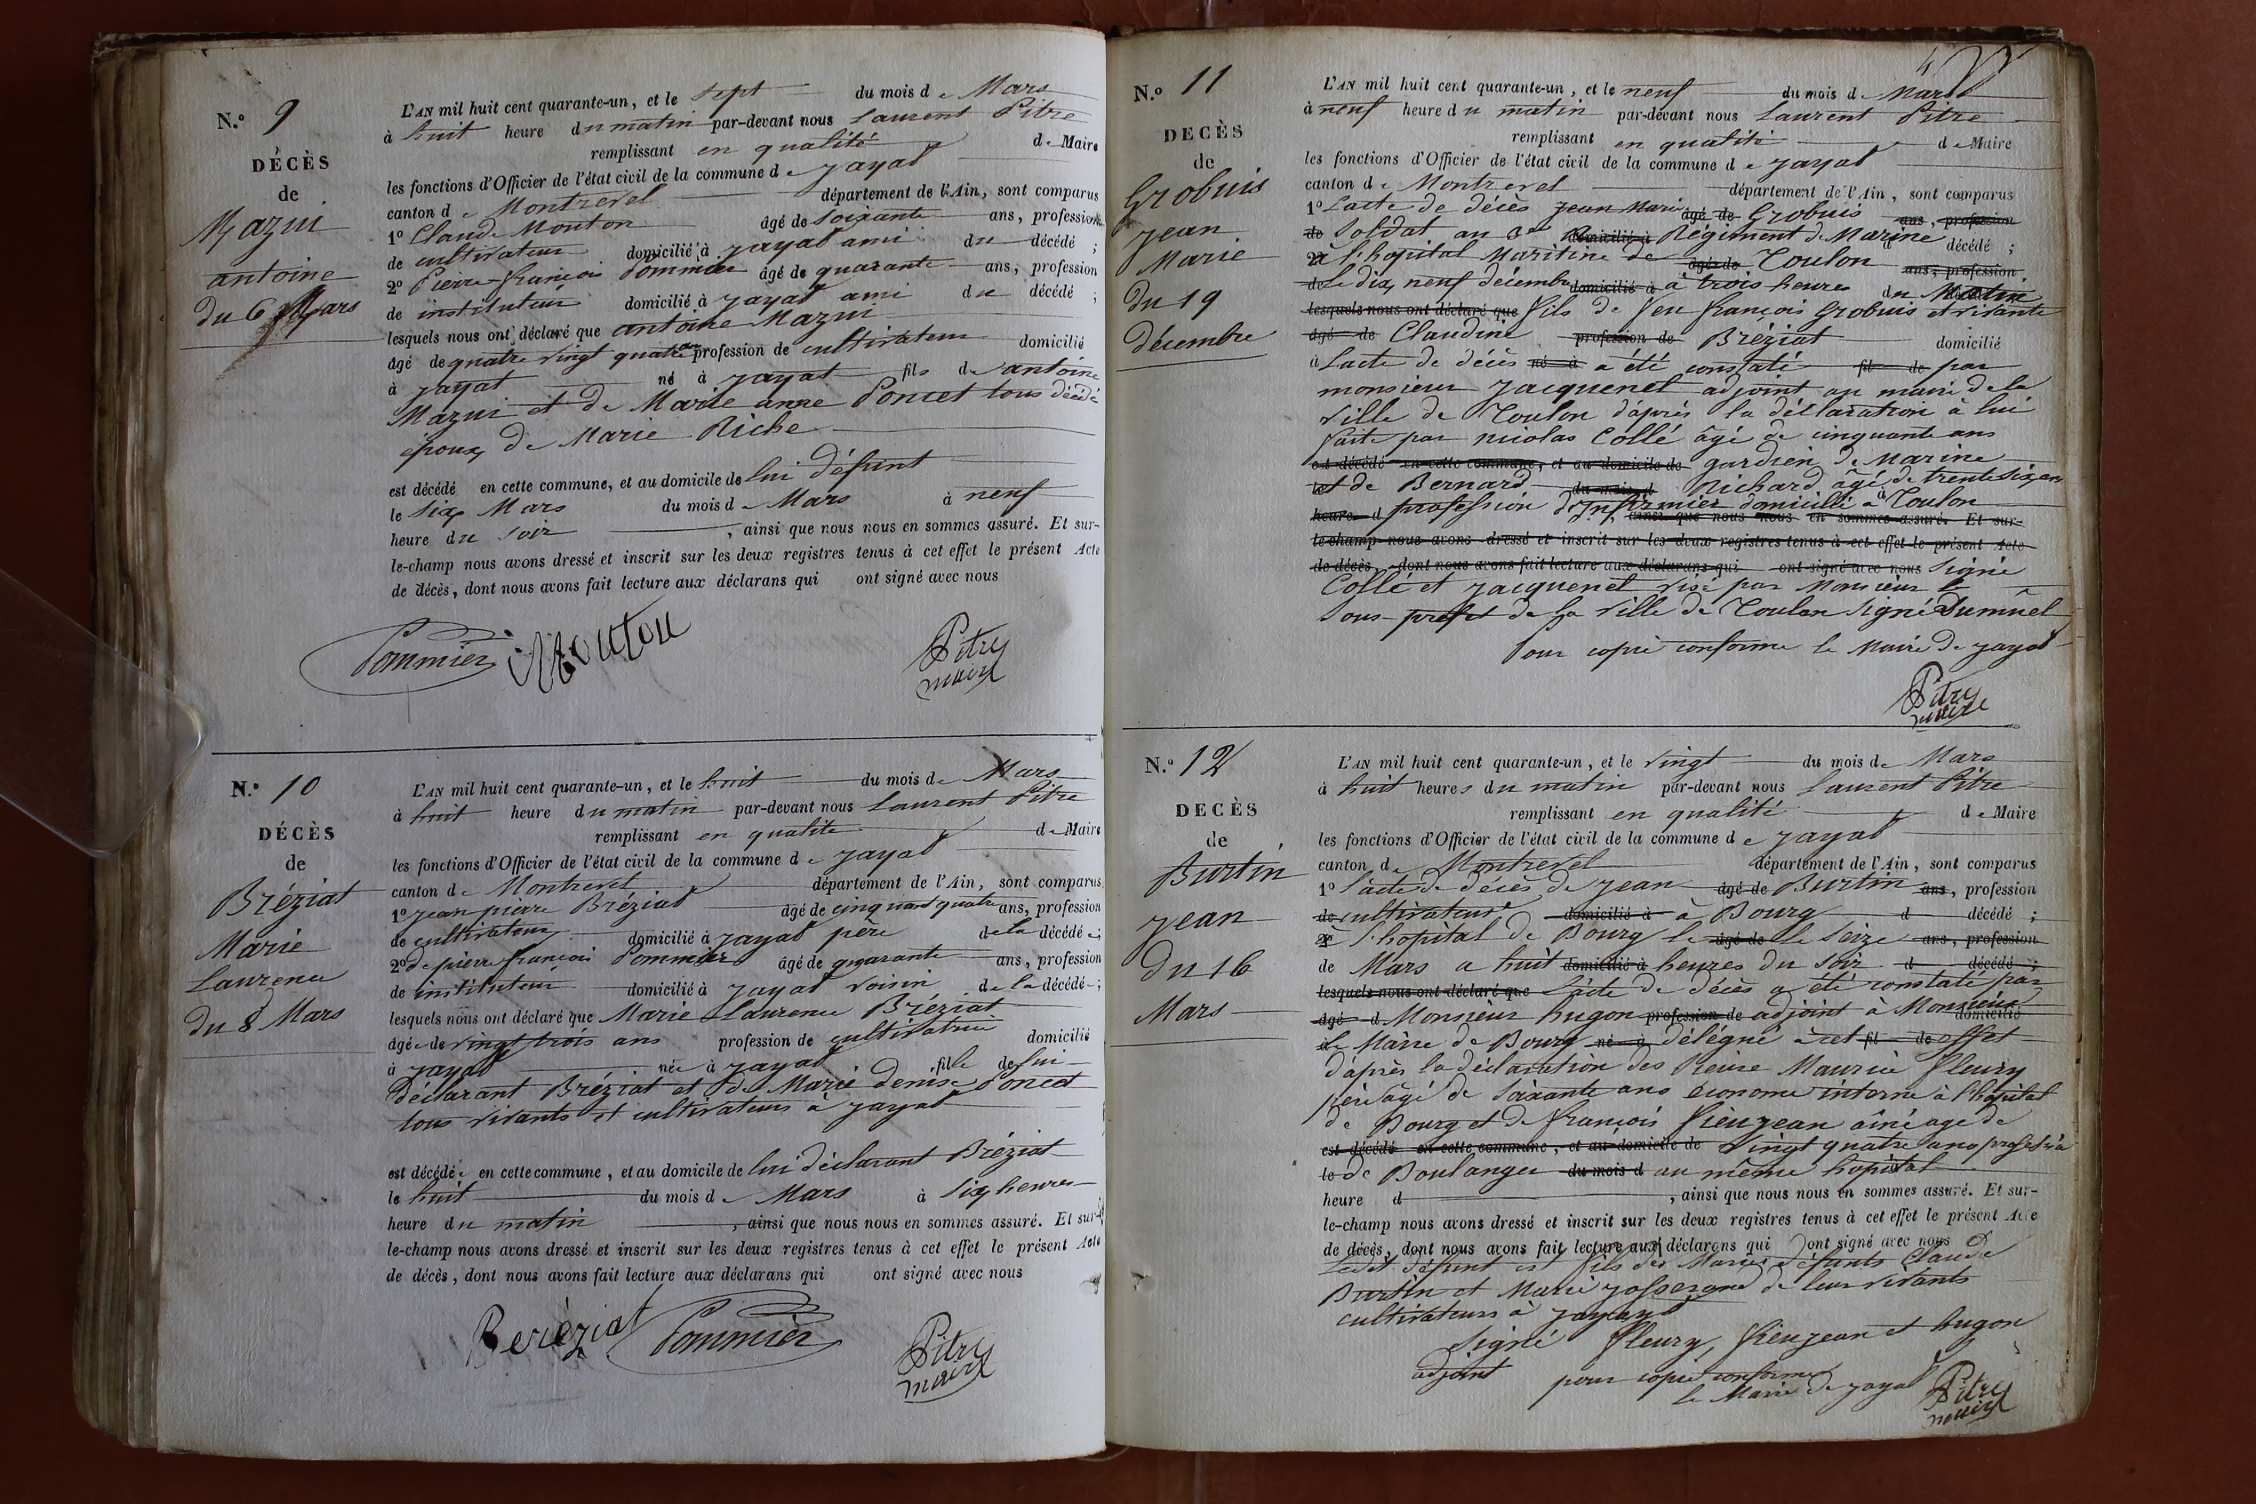 N.º 9
DÉCÈS
de
Mazui
antoine
du 6 Mars
L'AN mil huit cent quarante-un, et le sept du mois de Mars
à huit heure du matin par-devant nous Laurent Pitre
remplissant en qualité de Maire
les fonctions d'Officier de l'état civil de la commune de jayat
canton de Montrevel département de l'Ain, sont comparus
1º Claude Mouton âgé de soixante ans, profession
de cultivateur domicilié à jayat ami du décédé ;
2º Pierre-françois Pommier âgé de quarante ans, profession
de instituteur domicilié à jayat ami du décédé ;
lesquels nous ont déclaré que antoine Mazui
âgé de quatre vingt quatre ans profession de cultivateur domicilié
à jayat né à jayat fils de antoine
Mazui et de Marie anne Poncet tous décédé
époux de Marie Riche
est décédé en cette commune, et au domicile de lui défunt
le six Mars du mois de Mars à neuf
heure du soir , ainsi que nous nous en sommes assuré. Et sur-
le-champ nous avons dressé et inscrit sur les deux registres tenus à cet effet le présent Acte
de décès, dont nous avons fait lecture aux déclarans qui ont signé avec nous
Pommier Mouton Pitre
maire
N.º 10
DÉCÈS
de
Bréziat
Marie
Laurence
du 8 Mars
L'AN mil huit cent quarante-un, et le huit du mois de Mars
à huit heure du matin par-devant nous Laurent Pitre
remplissant en qualité de Maire
les fonctions d'Officier de l'état civil de la commune de jayat
canton de Montrevel département de l'Ain, sont comparus
1º jean pierre Bréziat âgé de cinquant quatre ans, profession
de cultivateur domicilié à jayat père de la décédée ;
2º de pierre françois Pommier âgé de quarante ans, profession
de instituteur domicilié à jayat voisin de la décédée ;
lesquels nous ont déclaré que Marie Laurence Bréziat
âgée de vingt trois ans profession de cultivatrice domicilié
à jayat née à jayat fille de lui
déclarant Bréziat et de Marie denise Poncet
tous vivants et cultivateurs à jayat
est décédée en cette commune, et au domicile de lui déclarant Bréziat
le huit du mois de Mars à six heures
heure du matin , ainsi que nous nous en sommes assuré. Et sur-
le-champ nous avons dressé et inscrit sur les deux registres tenus à cet effet le présent Acte
de décès, dont nous avons fait lecture aux déclarans qui ont signé avec nous
Bereziat Pommier Pitre
maire
N.º 11
DECÈS
de
Grobuis
jean
Marie
du 19
décembre
L'AN mil huit cent quarante-un, et le neuf du mois de Mars
à neuf heure du matin par-devant nous Laurent Pitre
remplissant en qualité de Maire
les fonctions d'Officier de l'état civil de la commune de jayat
canton de Montrevel département de l'Ain, sont comparus
1º Lacte de décès jean Marie âgé de Grobuis ans, profession
de Soldat au 3me domicilié à Régiment de Marine d décédé ;
2º à l'hopital Maritime de âgé de Toulon ans, profession
de Le dix neuf décembre domicilié à à trois heures du Matin
lesquels nous ont déclaré que fils de feu françois Grobuis et vivante
âgé de Claudine profession de Bréziat domicilié
à Lacte de décès né à a été constaté fil de par
monsieur Jacquenet adjoint au maire de la
ville de Toulon d'après la déclaration à lui
faite par nicolas Collé âgé de cinquante ans
est décédé en cette commune, et au domicile de gardien de Marine
le et de Bernard du mois d Richard âgé de trente six ans
heure d profession d'Infirmier domicilié à Toulon
, ainsi que nous nous en sommes assuré. Et sur-
le-champ nous avons dressé et inscrit sur les deux registres tenus à cet effet le présent Acte
de décès, dont nous avons fait lecture aux déclarans qui ont signé avec nous Signé
Collé et Jacquenet visé par Monsieur le
Sous-préfet de la ville de Toulon signé Dumnel
Pour copie conforme le Maire de jayat
Pitre
maire
N.º 12
DECÈS
de
Burtin
jean
du 16
Mars
L'AN mil huit cent quarante-un, et le vingt du mois de Mars
à huit heures du matin par-devant nous Laurent Pitre
remplissant en qualité de Maire
les fonctions d'Officier de l'état civil de la commune de jayat
canton de Montrevel département de l'Ain, sont comparus
1º l'acte de décès de jean âgé de Burtin ans, profession
de cultivateur domicilié à à Bourg d décédé ;
2º à l'hopital de Bourg le âgé de le seize ans, profession
de Mars a huit domicilié à heures du soir d décédé ;
lesquels nous ont déclaré que L'acte de décès a été constaté par
âgé d Monsieur hugon profession de adjoint à Monsieur domicilié
à le Maire de Bourg né à délégué à cet fil de effet
d'après la déclaration des Reine Maurice fleury
père âgé de soixante ans économe interne à l'hopital
de Bourg et de françois fieujean aîné age de
est décédé en cette commune, et au domicile de vingt quatre ans profession
le de Boulanger du mois d au même hopital
heure d , ainsi que nous nous en sommes assuré. Et sur-
le-champ nous avons dressé et inscrit sur les deux registres tenus à cet effet le présent Acte
de décès, dont nous avons fait lecture aux déclarans qui ont signé avec nous
Ledit défunt est fils des Mariés défunts Claude
Burtin et Marie de leur vivants
cultivateurs à jayat
Signé fleury, fieujean et hugon
adjoint pour copie conforme
le Maire de jayat Pitre
maire